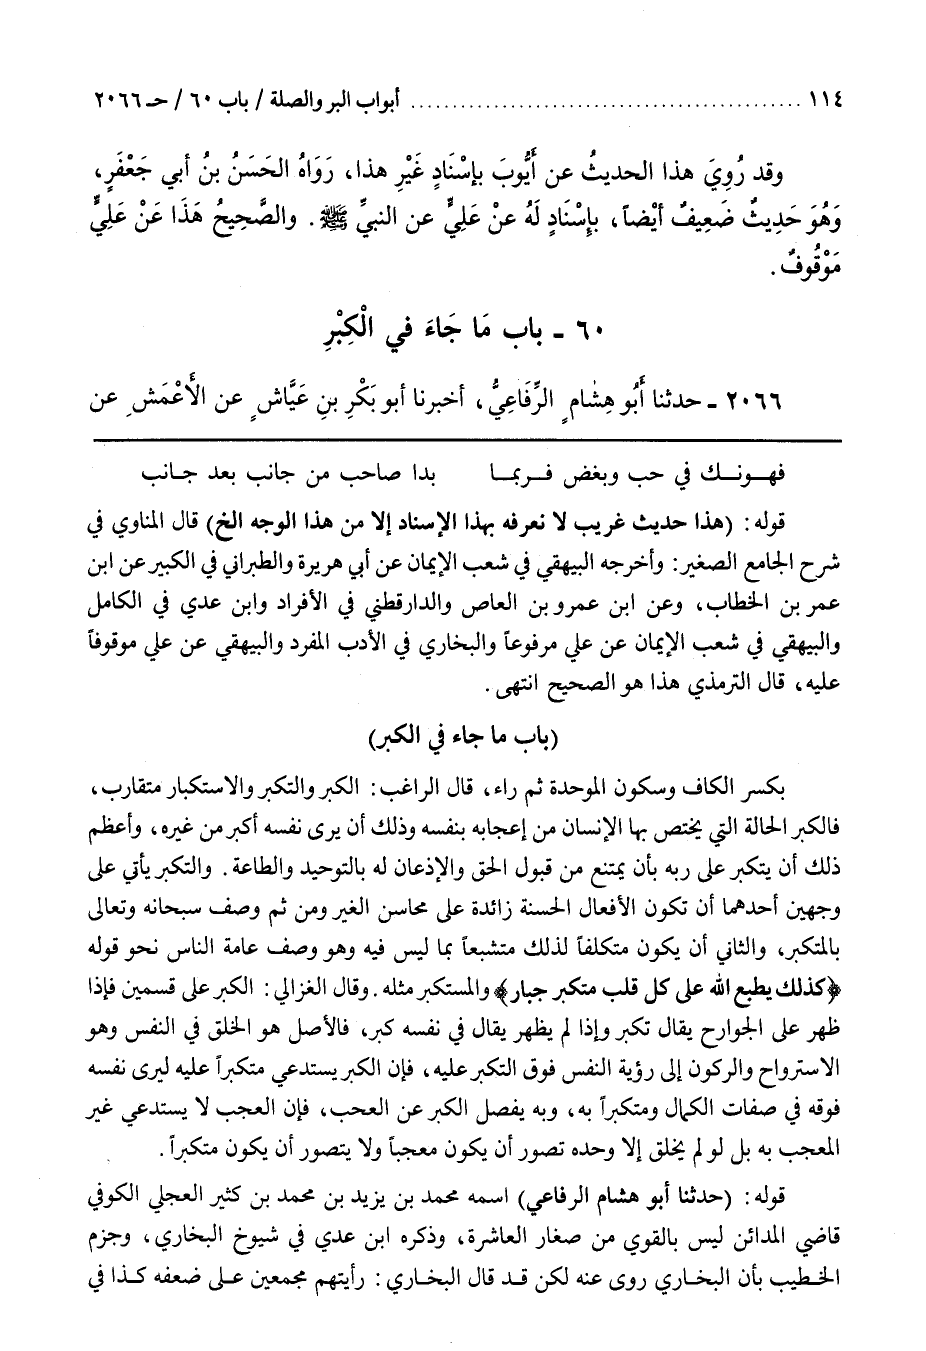 ١١٤ ................................................ أبواب البر والصلة / باب ٦٠ / حـ ٢٠٦٦
وقد رُوِيَ هذا الحديثُ عن أَيُّوبَ بإسْنَادٍ غَيْرِ هذا، رَوَاهُ الحَسَنُ بنُ أبي جَعْفَرٍ،
وَهُوَ حَدِيثٌ ضَعِيفٌ أيْضاً، بإِسْنَادٍ لَهُ عنْ عَلِيٍّ عن النبيِّ ﷺ. والصَّحِيحُ هَذَا عَنْ عَلِيٍّ
مَوْقُوفٌ.
٦٠ ـ باب مَا جَاءَ في الْكِبْرِ
٢٠٦٦ ـ حدثنا أَبُو هِشَامٍ الرِّفَاعِيُّ، أخبرنا أبو بَكْرِ بنِ عَيَّاشٍ عن الأَعْمَشِ عن
فهونك في حب وبغض فربما بدا صاحب من جانب بعد جانب
قوله: (هذا حديث غريب لا نعرفه بهذا الإسناد إلا من هذا الوجه الخ) قال المناوي في
شرح الجامع الصغير: وأخرجه البيهقي في شعب الإيمان عن أبي هريرة والطبراني في الكبير عن ابن
عمر بن الخطاب، وعن ابن عمرو بن العاص والدارقطني في الأفراد وابن عدي في الكامل
والبيهقي في شعب الإيمان عن علي مرفوعاً والبخاري في الأدب المفرد والبيهقي عن علي موقوفاً
عليه، قال الترمذي هذا هو الصحيح انتهى.
(باب ما جاء في الكبر)
بكسر الكاف وسكون الموحدة ثم راء، قال الراغب: الكبر والتكبر والاستكبار متقارب،
فالكبر الحالة التي يختص بها الإنسان من إعجابه بنفسه وذلك أن يرى نفسه أكبر من غيره، وأعظم
ذلك أن يتكبر على ربه بأن يمتنع من قبول الحق والإذعان له بالتوحيد والطاعة. والتكبر يأتي على
وجهين أحدهما أن تكون الأفعال الحسنة زائدة على محاسن الغير ومن ثم وصف سبحانه وتعالى
بالمتكبر، والثاني أن يكون متكلفاً لذلك متشبعاً بما ليس فيه وهو وصف عامة الناس نحو قوله
﴿كذلك يطبع الله على كل قلب متكبر جبار﴾ والمستكبر مثله. وقال الغزالي: الكبر على قسمين فإذا
ظهر على الجوارح يقال تكبر وإذا لم يظهر يقال في نفسه كبر، فالأصل هو الخلق في النفس وهو
الاسترواح والركون إلى رؤية النفس فوق التكبر عليه، فإن الكبر يستدعي متكبراً عليه ليرى نفسه
فوقه في صفات الكمال ومتكبراً به، وبه يفصل الكبر عن العجب، فإن العجب لا يستدعي غير
المعجب به بل لو لم يخلق إلا وحده تصور أن يكون معجباً ولا يتصور أن يكون متكبراً.
قوله: (حدثنا أبو هشام الرفاعي) اسمه محمد بن يزيد بن محمد بن كثير العجلي الكوفي
قاضي المدائن ليس بالقوي من صغار العاشرة، وذكره ابن عدي في شيوخ البخاري، وجزم
الخطيب بأن البخاري روى عنه لكن قد قال البخاري: رأيتهم مجمعين على ضعفه كذا في